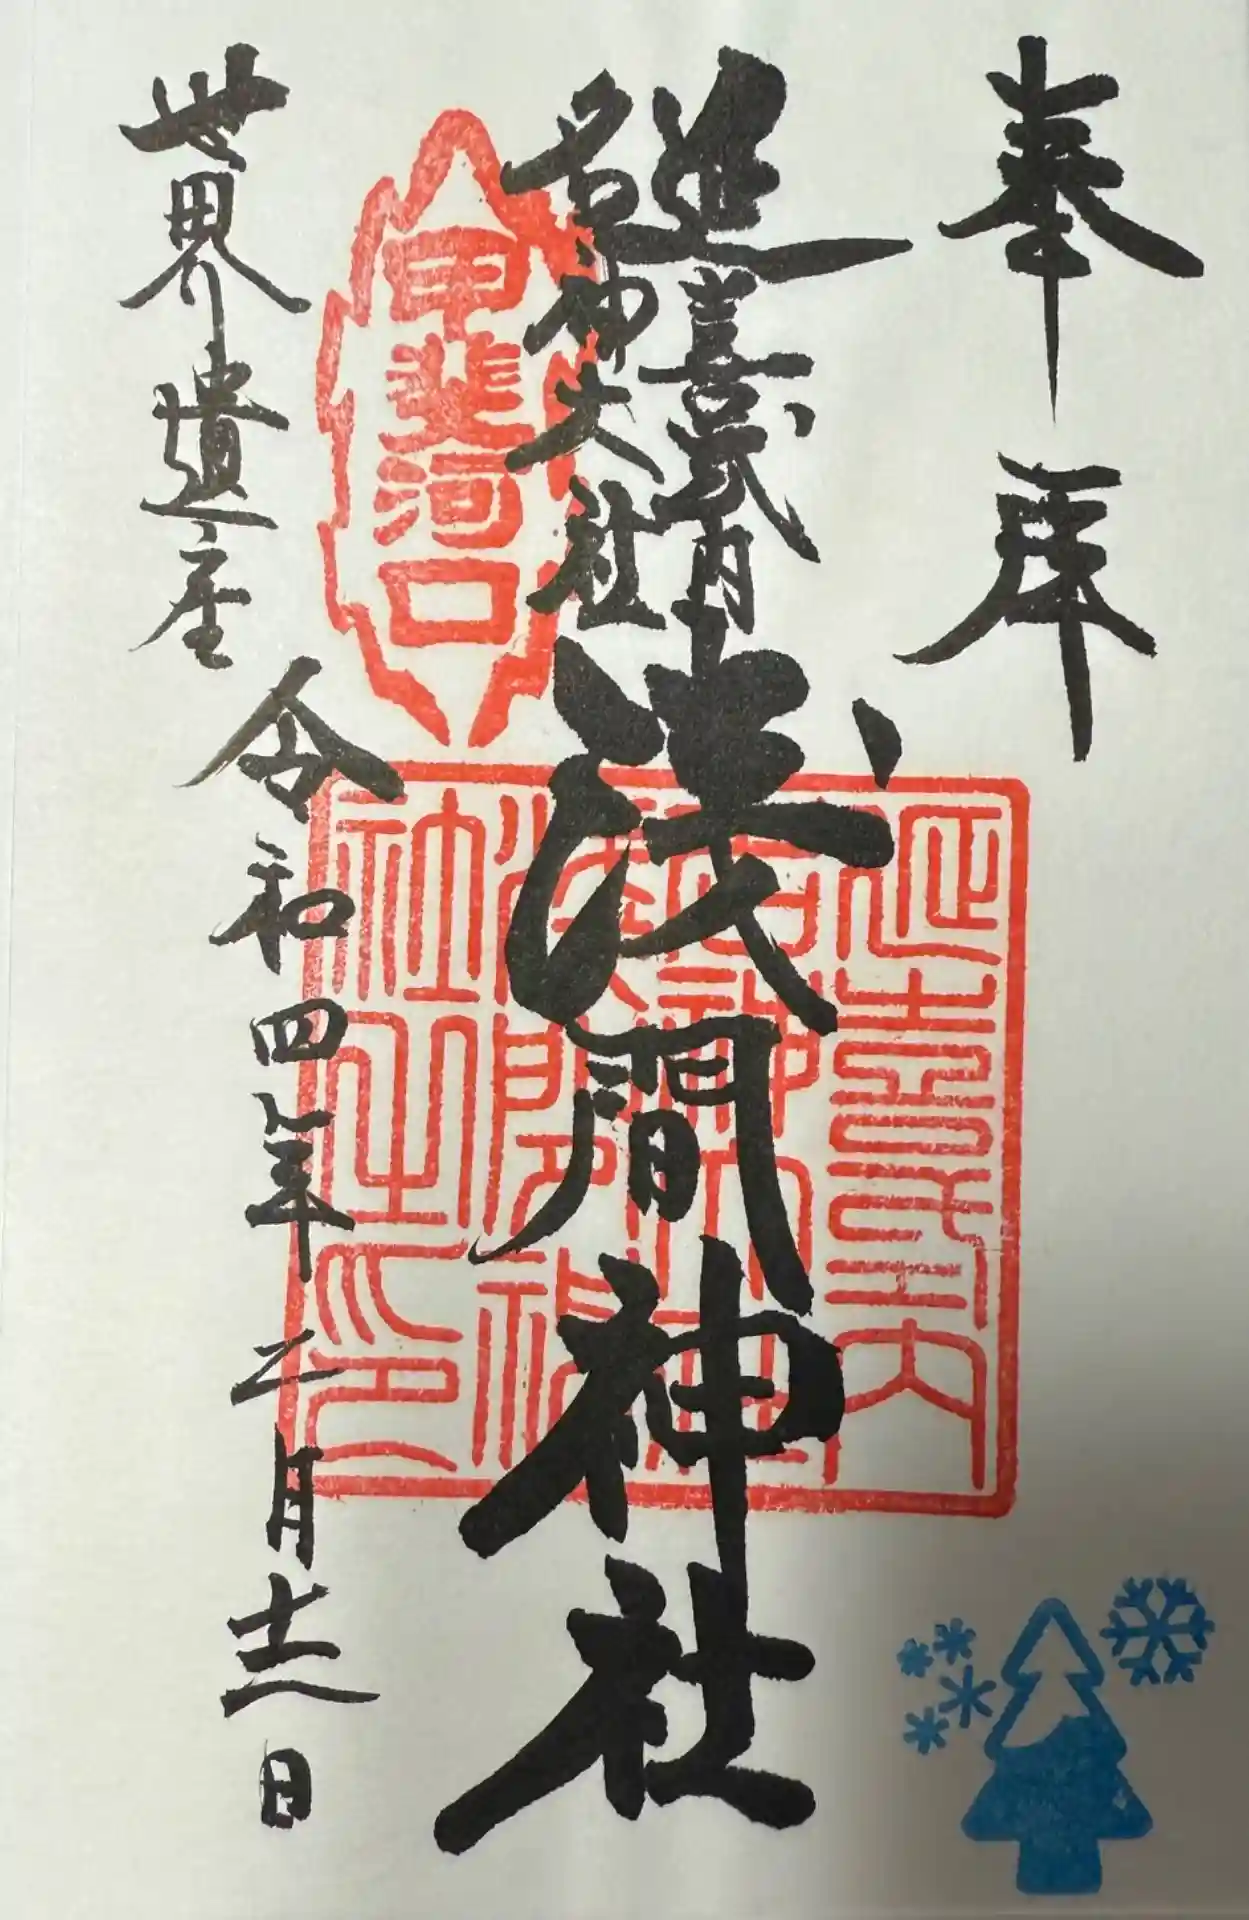 奉拝
延喜式内
名神大社
浅間神社
令和四年二月十二日
世界遺産
甲斐河口
延喜式内
名神大社
淺間神
社之印